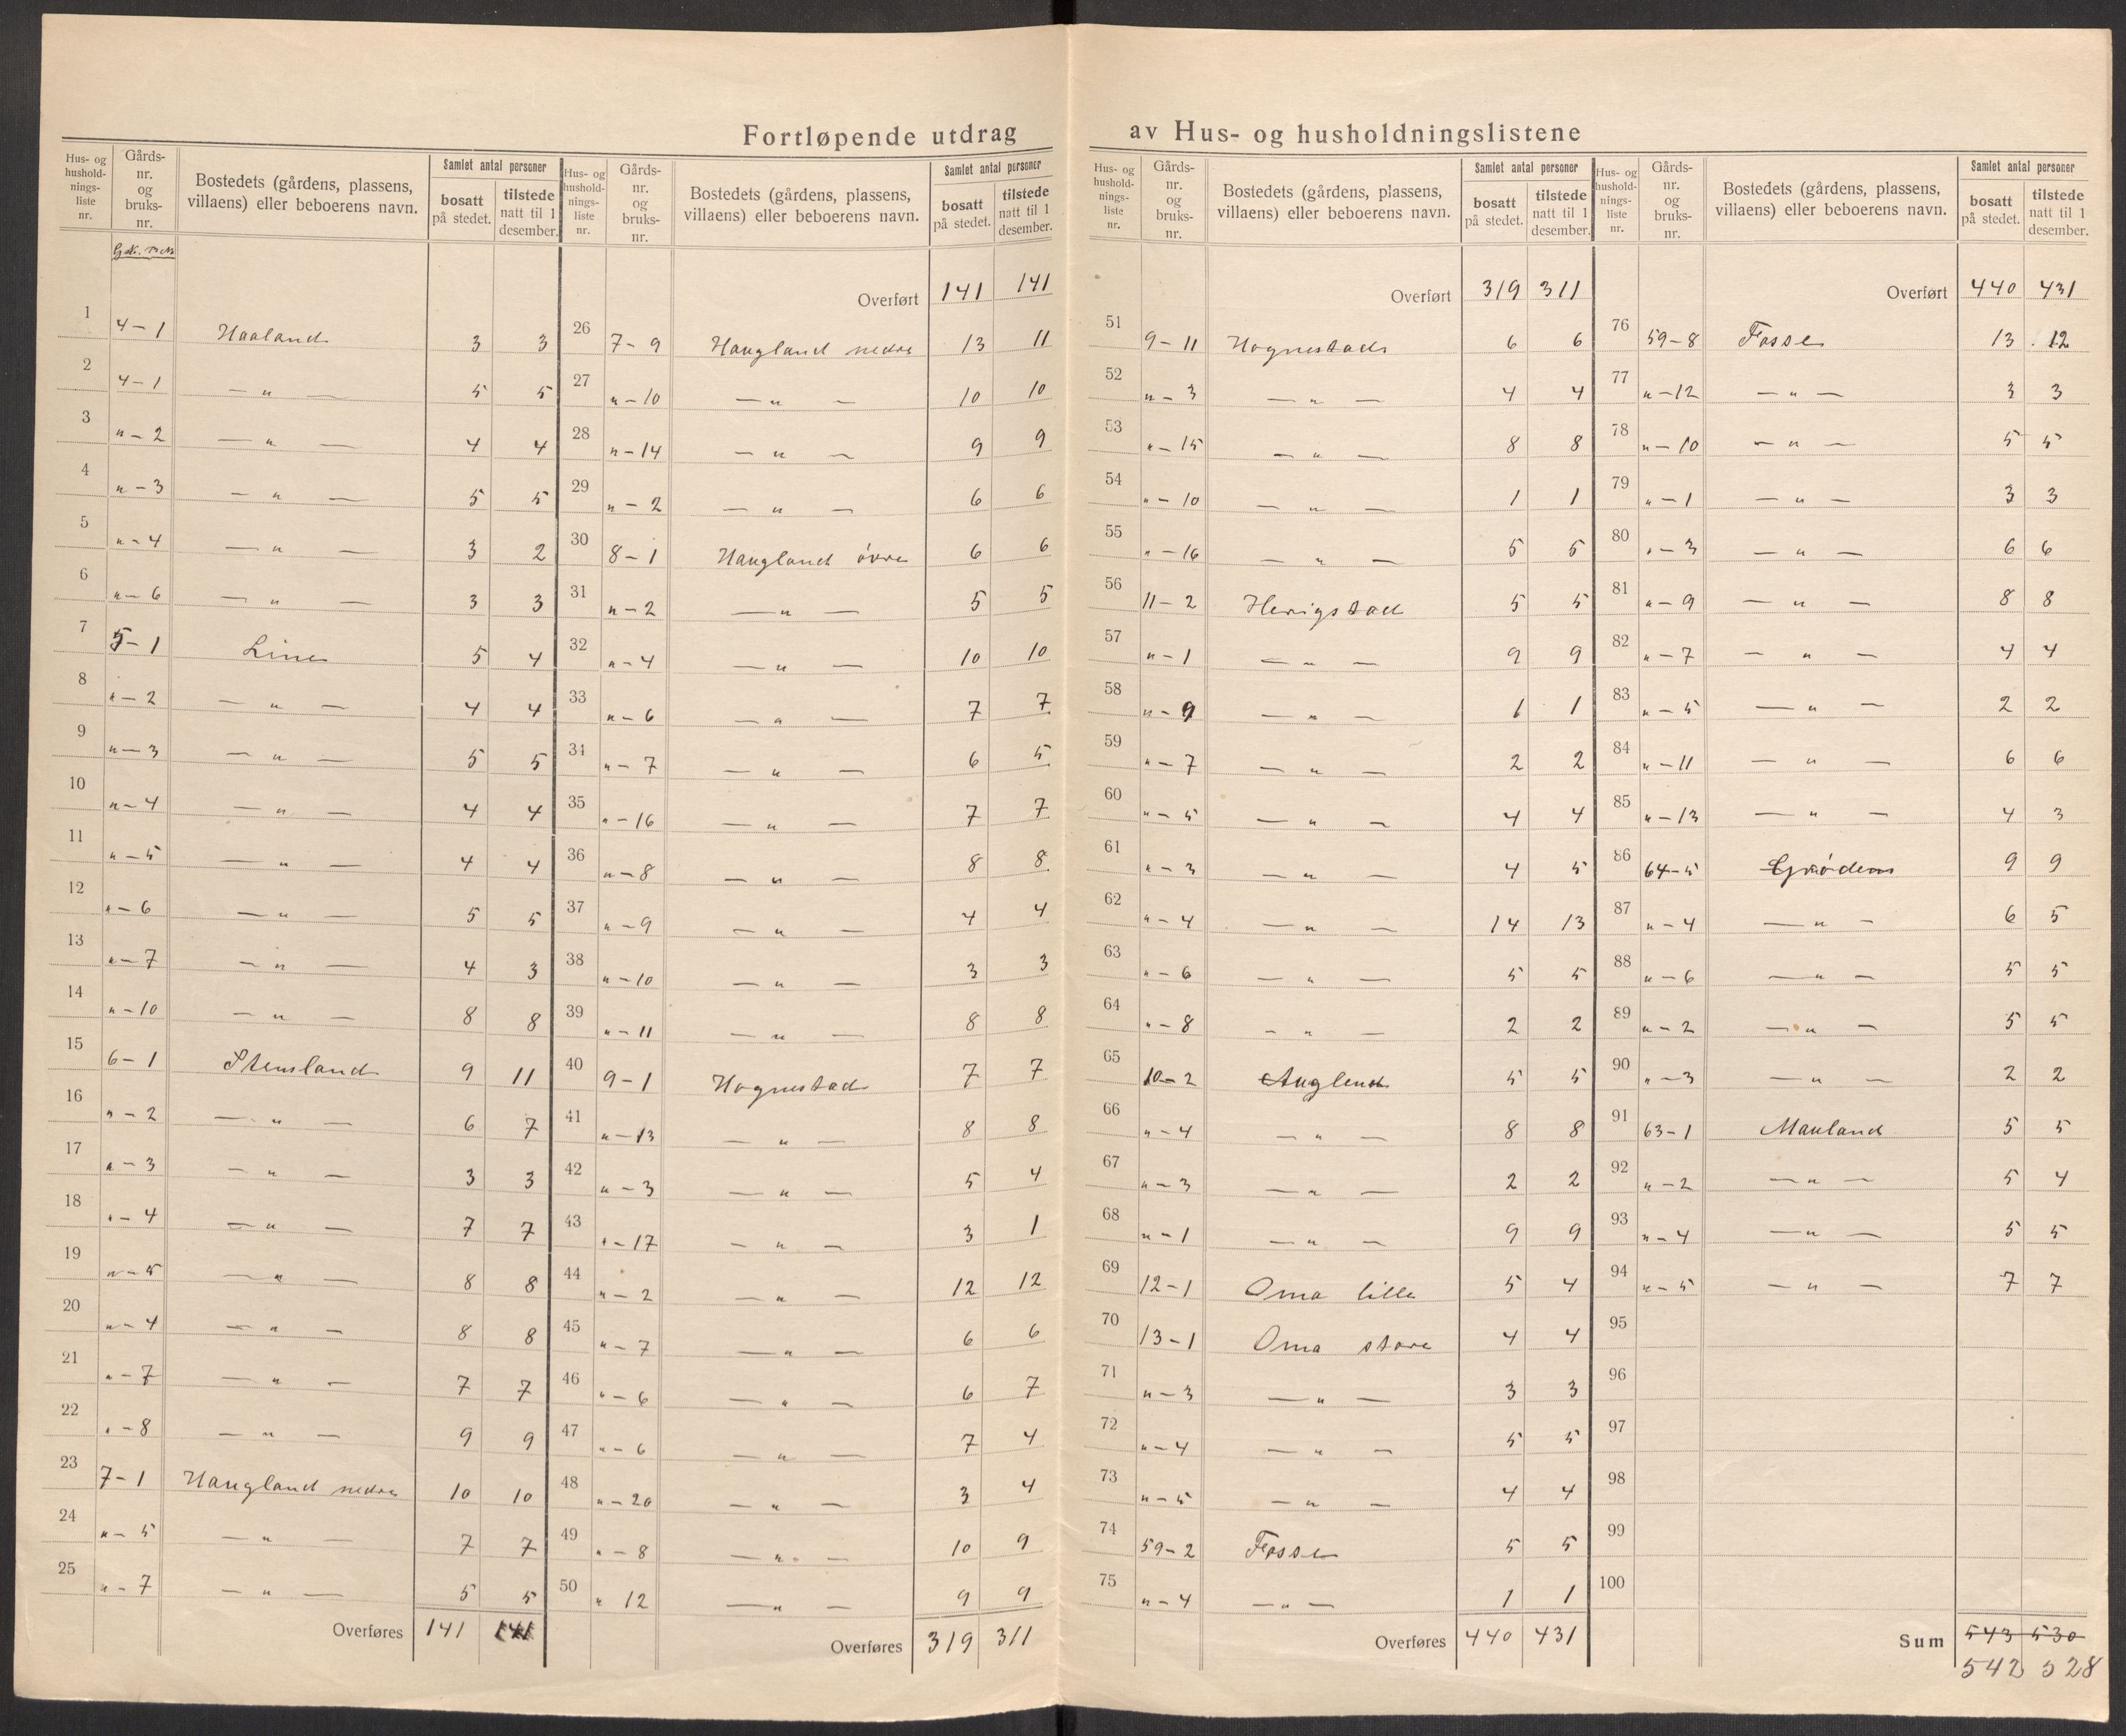 Fortløpende utdrag av Hus- og husholdningslistene
Hus- og hushold-nings-liste nr. | Gårds-nr. og bruks-nr. | Bostedets (gårdens, plassens, villaens) eller beboerens navn. | Samlet antal personer | bosatt på stedet. | tilstede natt til 1 desember.
1 4-1 Haaland 3 3
2 4-1 — " — 5 5
3 " - 2 — " — 4 4
4 " - 3 — " — 5 5
5 " - 4 — " — 3 2
6 " - 6 — " — 3 3
7 5-1 Line 5 4
8 " - 2 — " — 4 4
9 " - 3 — " — 5 5
10 " - 4 — " — 4 4
11 " - 5 — " — 4 4
12 " - 6 — " — 5 5
13 " - 7 — " — 4 3
14 " - 10 — " — 8 8
15 6-1 Stensland 9 11
16 " - 2 — " — 6 7
17 " - 3 — " — 3 3
18 " - 4 — " — 7 7
19 " - 5 — " — 8 8
20 " - 4 — " — 8 8
21 " - 7 — " — 7 7
22 " - 8 — " — 9 9
23 7-1 Haugland nedre 10 10
24 " - 5 — " — 7 7
25 " - 7 — " — 5 5
Overføres 141 141
Hus- og hushold-nings-liste nr. | Gårds-nr. og bruks-nr. | Bostedets (gårdens, plassens, villaens) eller beboerens navn. | Samlet antal personer | bosatt på stedet. | tilstede natt til 1 desember.
Overført 141 141
26 7-9 Haugland nedre 13 11
27 " - 10 — " — 10 10
28 " - 14 — " — 9 9
29 " - 2 — " — 6 6
30 8-1 Haugland övre 6 6
31 " - 2 — " — 5 5
32 " - 4 — " — 10 10
33 " - 6 — " — 7 7
34 " - 7 — " — 6 5
35 " - 16 — " — 7 7
36 " - 8 — " — 8 8
37 " - 9 — " — 4 4
38 " - 10 — " — 3 3
39 " - 11 — " — 8 8
40 9-1 Hognestad 7 7
41 " - 13 — " — 8 8
42 " - 3 — " — 5 4
43 " - 17 — " — 3 1
44 " - 2 — " — 12 12
45 " - 7 — " — 6 6
46 " - 6 — " — 6 7
47 " - 6 — " — 7 4
48 " - 20 — " — 3 4
49 " - 8 — " — 10 9
50 " 12 — " — 9 9
Overføres 319 311
Hus- og hushold-nings-liste nr. | Gårds-nr. og bruks-nr. | Bostedets (gårdens, plassens, villaens) eller beboerens navn. | Samlet antal personer | bosatt på stedet. | tilstede natt til 1 desember.
Overført 319 311
51 9-11 Hognestad 6 6
52 " - 3 — " — 4 4
53 " - 15 — " — 8 8
54 " - 10 — " — 1 1
55 " - 16 — " — 5 5
56 11-2 Herigstad 5 5
57 " - 1 — " — 9 9
58 " - 9 — " — 1 1
59 " - 7 — " — 2 2
60 " - 5 — " — 4 4
61 " - 3 — " — 4 5
62 " - 4 — " — 14 13
63 " - 6 — " — 5 5
64 " - 8 — " — 2 2
65 10-2 Auglend 5 5
66 " - 4 — " — 8 8
67 " - 3 — " — 2 2
68 " - 1 — " — 9 9
69 12-1 Oma lille 5 4
70 13-1 Oma store 4 4
71 " - 3 — " — 3 3
72 " - 4 — " — 5 5
73 " - 5 — " — 4 4
74 59-2 Fosse 5 5
75 " - 4 — " — 1 1
Overføres 440 431
Hus- og hushold-nings-liste nr. | Gårds-nr. og bruks-nr. | Bostedets (gårdens, plassens, villaens) eller beboerens navn. | Samlet antal personer | bosatt på stedet. | tilstede natt til 1 desember.
Overført 440 431
76 59-8 Fosse 13 12
77 " - 12 — " — 3 3
78 " - 10 — " — 5 5
79 " - 1 — " — 3 3
80 " - 3 — " — 6 6
81 " - 9 — " — 8 8
82 " - 7 — " — 4 4
83 " - 5 — " — 2 2
84 " - 11 — " — 6 6
85 " - 13 — " — 4 3
86 64-5 Grödem 9 9
87 " - 4 — " — 6 5
88 " - 6 — " — 5 5
89 " - 2 — " — 5 5
90 " - 3 — " — 2 2
91 63-1 Mauland 5 5
92 " - 2 — " — 5 4
93 " - 4 — " — 5 5
94 " - 5 — " — 7 7
95
96
97
98
99
100
Sum 543 530
542 528